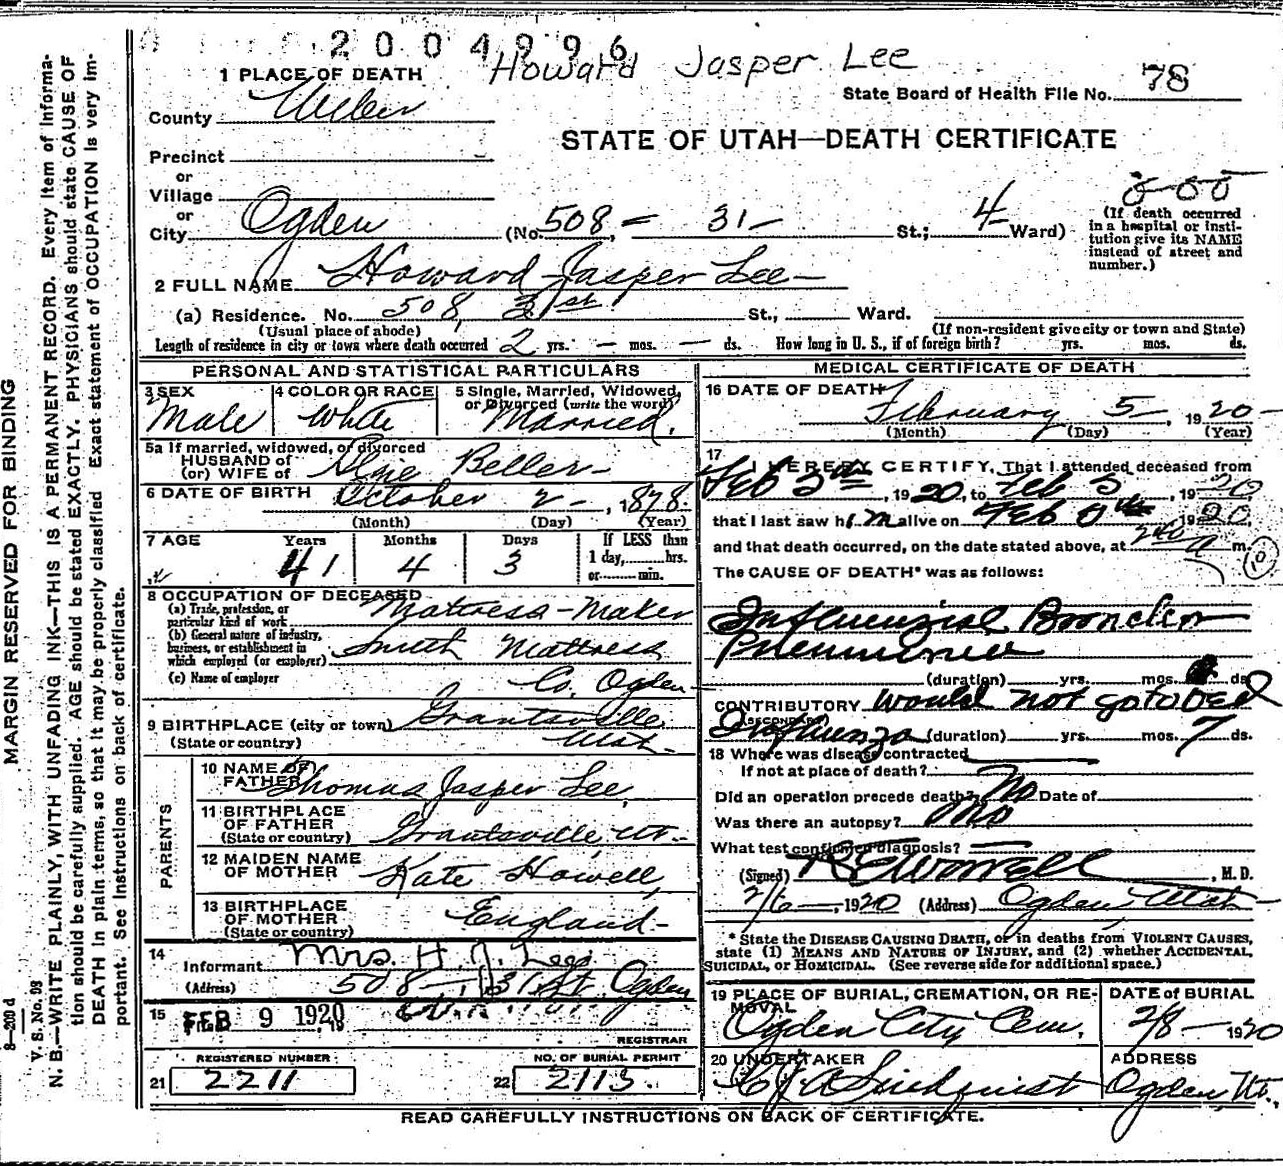 2004996
Howard Jasper Lee
1 PLACE OF DEATH
State Board of Health File No. 78
County Weber
STATE OF UTAH—DEATH CERTIFICATE
Precinct
or
Village
or
City Ogden (No. 508 - 31 - St.; 4 Ward)
(If death occurred in a hospital or institution give its NAME instead of street and number.)
2 FULL NAME Howard Jasper Lee
(a) Residence. No. 508, 31st St., Ward.
(Usual place of abode) (If non-resident give city or town and State)
Length of residence in city or town where death occurred 2 yrs. — mos. — ds. How long in U. S., if of foreign birth? yrs. mos. ds.
PERSONAL AND STATISTICAL PARTICULARS
3 SEX Male
4 COLOR OR RACE White
5 Single, Married, Widowed, or Divorced (write the word) Married.
5a If married, widowed, or divorced
HUSBAND of
(or) WIFE of Elsie Beller
6 DATE OF BIRTH October 2 - , 1878
(Month) (Day) (Year)
7 AGE Years 41 Months 4 Days 3
If LESS than
1 day, hrs.
or min.
8 OCCUPATION OF DECEASED
(a) Trade, profession, or particular kind of work Mattress-Maker
(b) General nature of industry, business, or establishment in which employed (or employer) Smith Mattress
(c) Name of employer Co. Ogden
9 BIRTHPLACE (city or town) Grantsville
(State or country) Utah
PARENTS
10 NAME OF FATHER Thomas Jasper Lee,
11 BIRTHPLACE OF FATHER (State or country) Grantsville, Ut.
12 MAIDEN NAME OF MOTHER Kate Howell,
13 BIRTHPLACE OF MOTHER (State or country) England
14 Informant Mrs. H. J. Lee
(Address) 508 - 31 St. Ogden
15 Filed FEB 9 1920
REGISTRAR
REGISTERED NUMBER
21 2211
NO. OF BURIAL PERMIT
22 2113.
MEDICAL CERTIFICATE OF DEATH
16 DATE OF DEATH February 5 - 1920
(Month) (Day) (Year)
17 I HEREBY CERTIFY, That I attended deceased from
Feb , 1920, to Feb 5, 1920
that I last saw him alive on Feb 1920,
and that death occurred, on the date stated above, at a m.
The CAUSE OF DEATH* was as follows:
Influenzial Broncho
Pneumonia
(duration) yrs. mos. ds.
CONTRIBUTORY would not go to bed
(SECONDARY)
Influenza (duration) yrs. mos. 7 ds.
18 Where was disease contracted
If not at place of death?
Did an operation precede death? No Date of
Was there an autopsy? No
What test confirmed diagnosis?
(Signed) R E Worrell, M. D.
2/6 -, 1920 (Address) Ogden Utah
* State the DISEASE CAUSING DEATH, or in deaths from VIOLENT CAUSES, state (1) MEANS AND NATURE OF INJURY, and (2) whether ACCIDENTAL, SUICIDAL, or HOMICIDAL. (See reverse side for additional space.)
19 PLACE OF BURIAL, CREMATION, OR REMOVAL Ogden City Cem.
DATE of BURIAL 2/8 - 1920
20 UNDERTAKER Lindquist
ADDRESS Ogden, Ut.,
READ CAREFULLY INSTRUCTIONS ON BACK OF CERTIFICATE.
MARGIN RESERVED FOR BINDING
8—200 d
V. S. No. 98
N. B.—WRITE PLAINLY, WITH UNFADING INK—THIS IS A PERMANENT RECORD. Every item of information should be carefully supplied. AGE should be stated EXACTLY. PHYSICIANS should state CAUSE OF DEATH in plain terms, so that it may be properly classified. Exact statement of OCCUPATION is very important. See instructions on back of certificate.